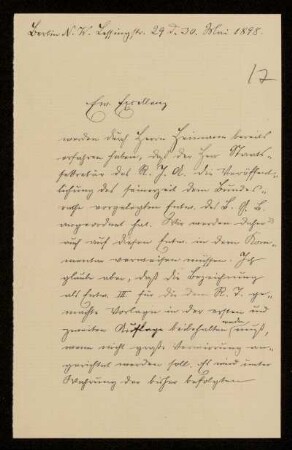 Berlin N. W. Lessingstr. 29 d. 30. Mai 1898.
17
Ew. Excellenz
werden durch Herrn Heimann bereits
erfahren haben, daß der Herr Staats-
sekretär des R. J. A. die Veröffent-
lichung des seinerzeit dem Bundes-
rathe vorgelegten Entw. des B. G. B.
angeordnet hat. Wir werden daher
auch auf diesen Entw. in dem Kom-
mentar verweisen müssen. Ich
glaube aber, daß die Bezeichnung
als Entw. III für die dem R. T. ge-
machte Vorlage in der ersten und
zweiten Auflage beibehalten werden muß,
wenn nicht große Verwirrung an-
gerichtet werden soll. Es wird unter
Wahrung der bisher befolgten